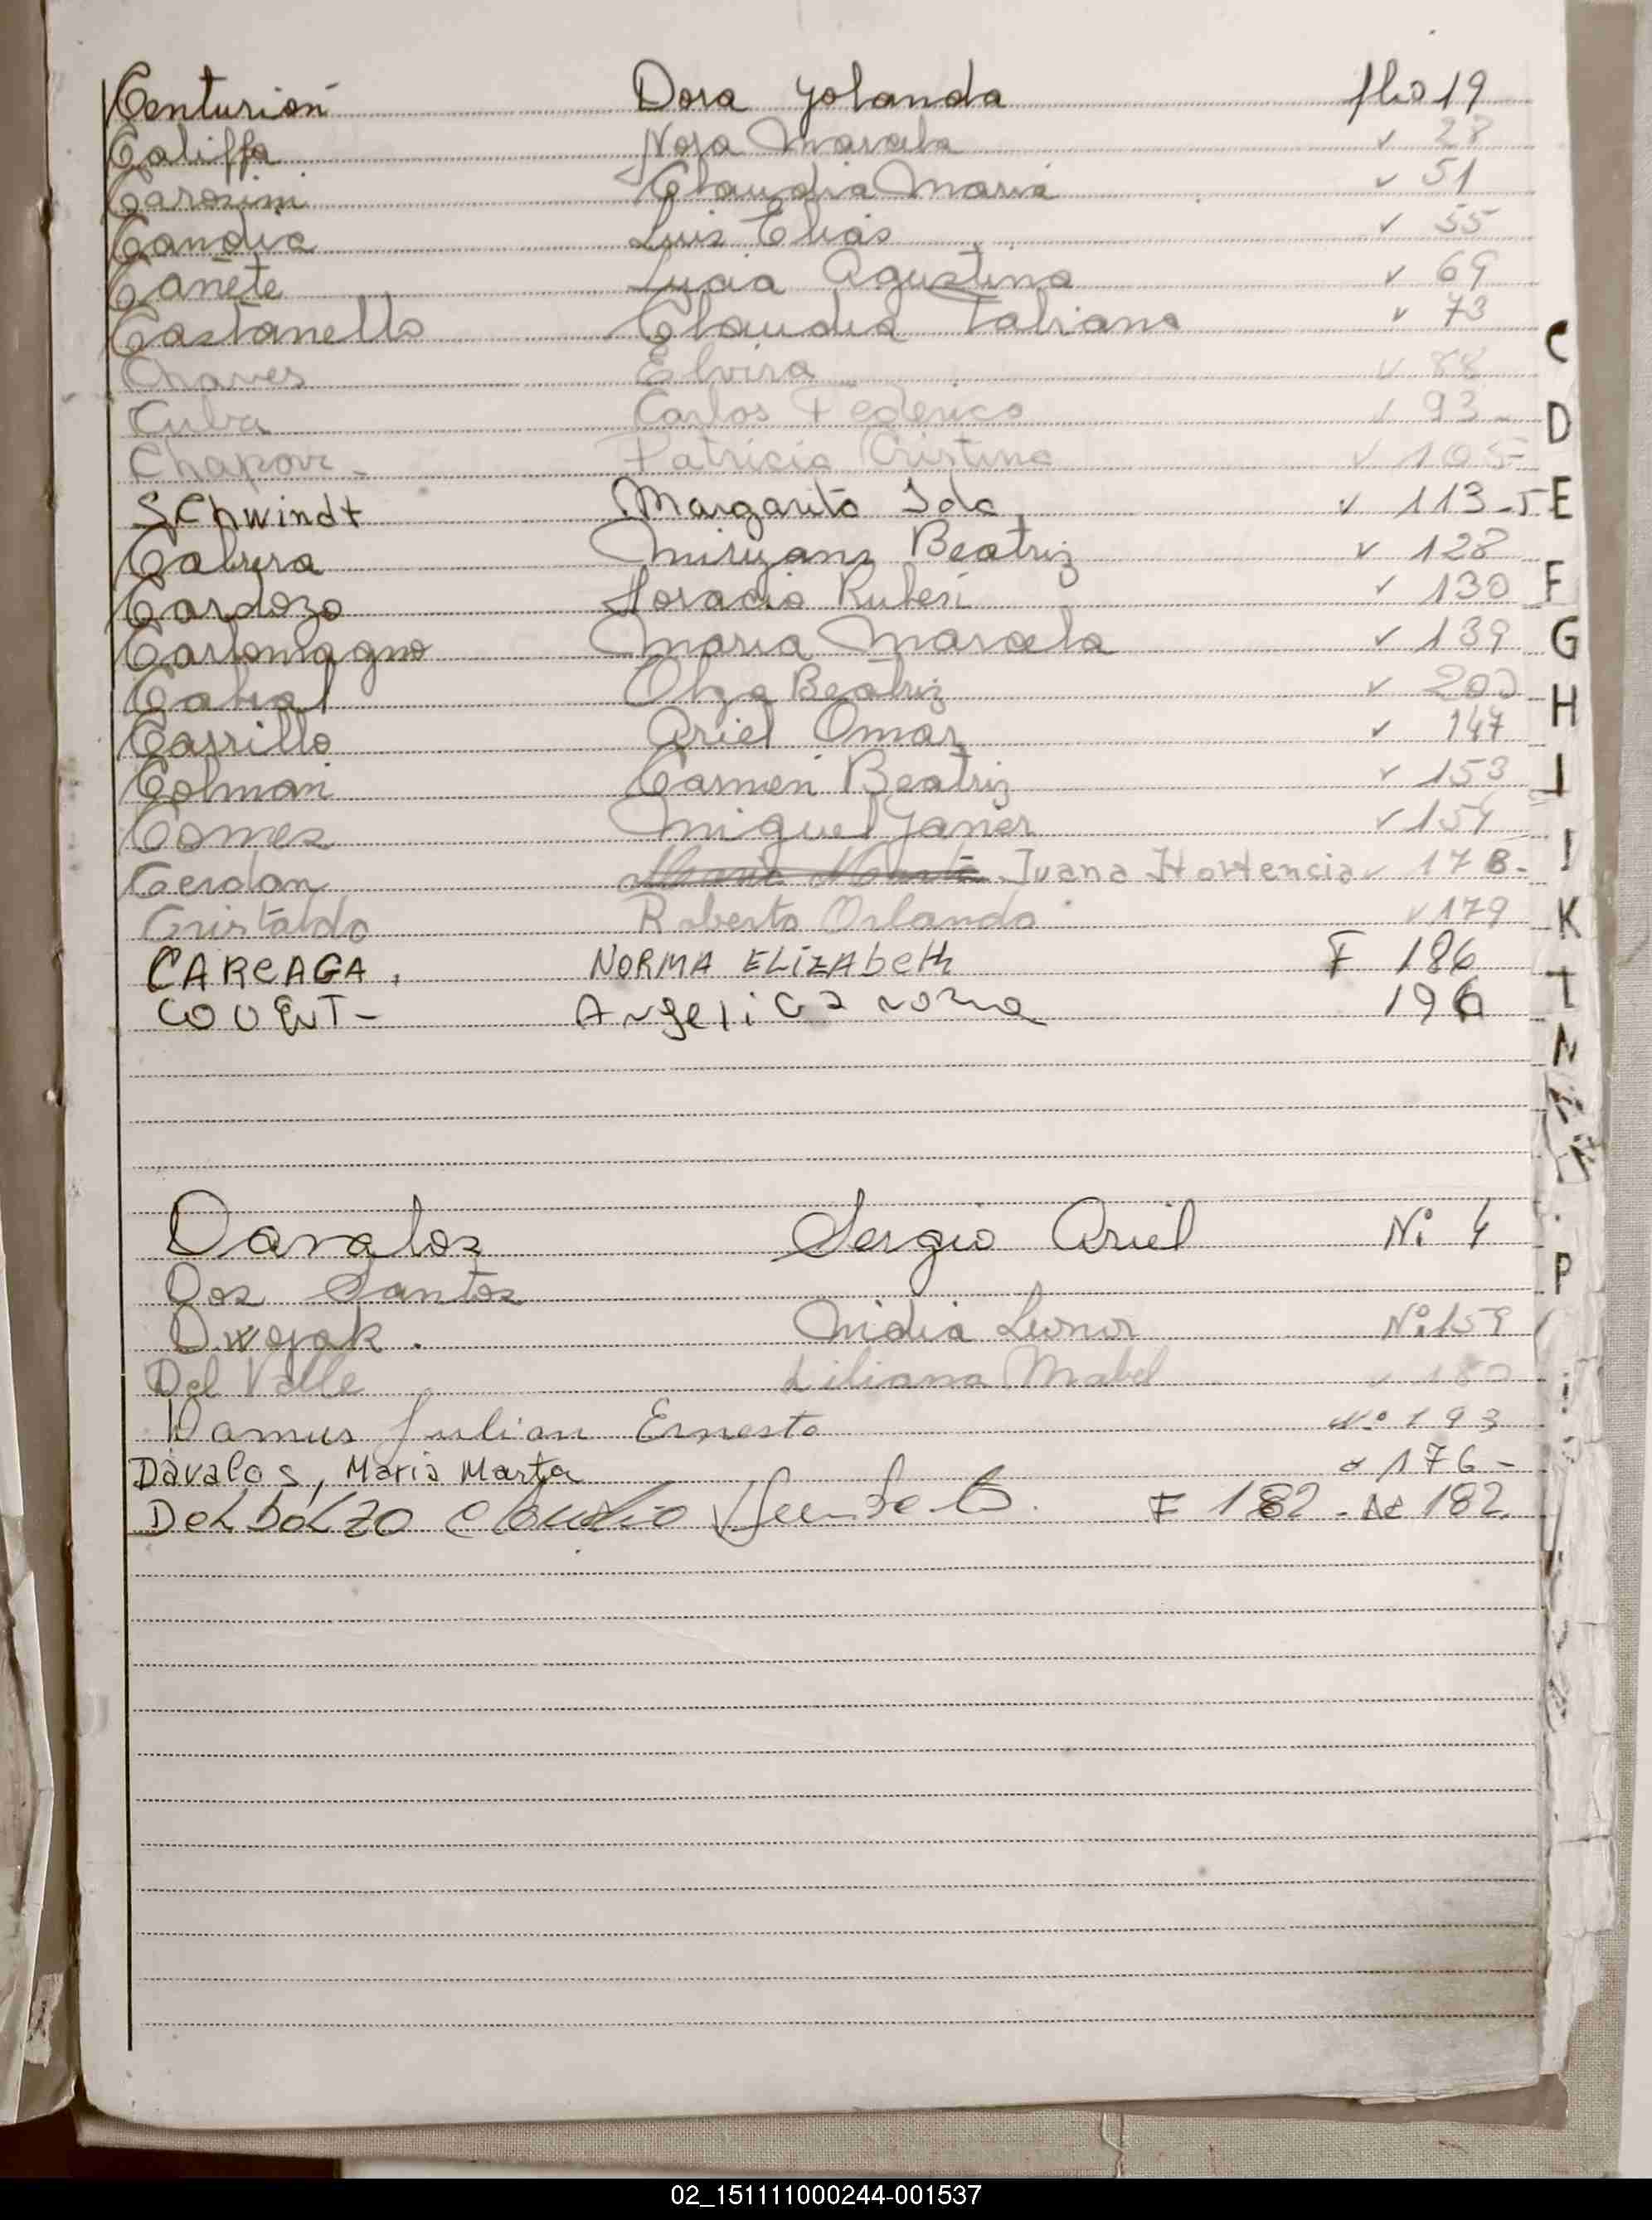 Centurion Dora Yolanda flio 19
Califfa Nora Marcela v 28
Carosini Claudia Maria v 51
Candia Luis Elias v 55
Cañete Lucia Agustina v 69
Castanello Claudia Tatiana v 73
Chaves Elvira v 88
Cuba Carlos Federico v 93-
Chapour- Patricia Cristina v 105-
SChwindt Margarita Ida v 113-J
Cabrera Miryam Beatriz v 128
Cardozo Horacio Ruben v 130
Carlomagno Maria Marcela v 139
Cabral Olga Beatriz v 200
Carrillo Ariel Omar v 147
Colman Carmen Beatriz v 153
Comez Miguel Janer v 154
Cerdan Juana Hortencia v 178-
Cristaldo Roberto Orlando v 179
CAREAGA. NORMA ELIZAbetH F 186
COUENT- Angelica 196
Davalos Sergio Ariel Nº 4
Dos Santos
Dwojak. Nidia Leonor Nº 159
Del Valle Liliana Mabel v 180
Damus Julian Ernesto Nº 193
Dávalos, Maria Marta 176-
DeL boLzo Claudio F 182 - 182
C
D
E
F
G
H
I
J
K
L
N
P
02_151111000244-001537